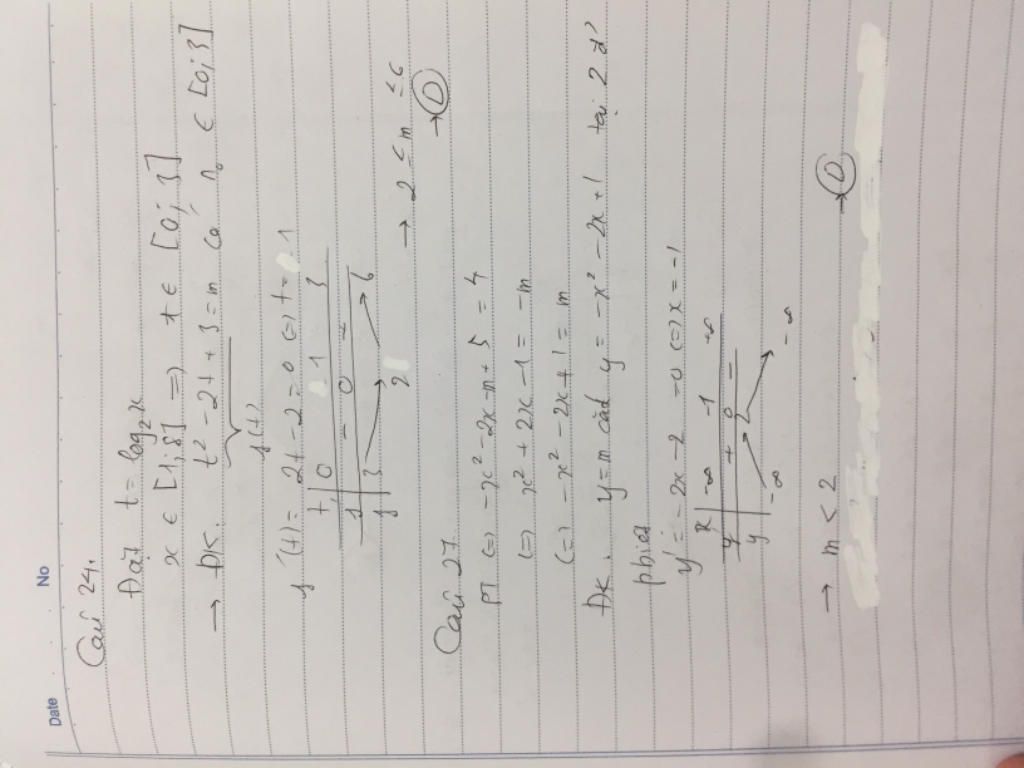 Date No
Câu 24.
Đặt t = log₂x
x ∈ [1; 8] => t ∈ [0; 3]
→ ĐK. t² - 2t + 3 = m có n₀ ∈ [0; 3]
f(t)
f'(t) = 2t - 2 = 0 <=> t = 1
t | 0 1 3
f' | - 0 +
f | 3 2 6
→ 2 ≤ m ≤ 6
→ D
Câu 27
PT <=> -x² - 2x - m + 5 = 4
<=> x² + 2x - 1 = -m
<=> -x² - 2x + 1 = m
ĐK. y = m cắt y = -x² - 2x + 1 tại 2 đ'
phbiệt
y' = -2x - 2 = 0 <=> x = -1
x | -∞ -1 +∞
y' | + 0 -
y | -∞ 2 -∞
→ m < 2
→ D